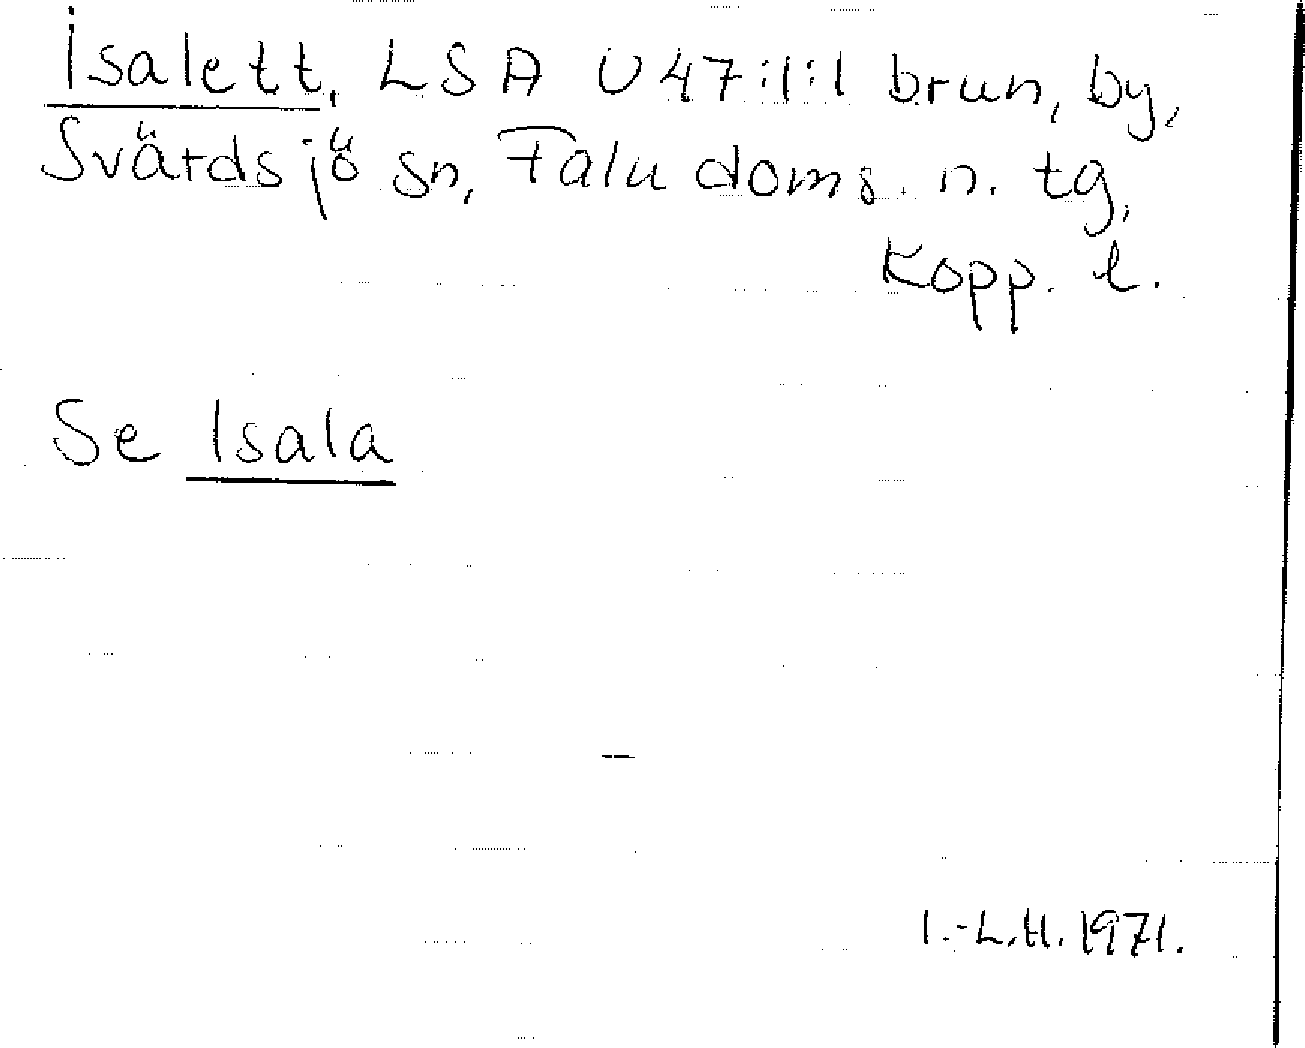 Isalett, LSA U47:1:1 brun, by,
Svärdsjö sn, Falu doms. n. tg,
Kopp. l.
Se Isala
I.-L.H. 1971.